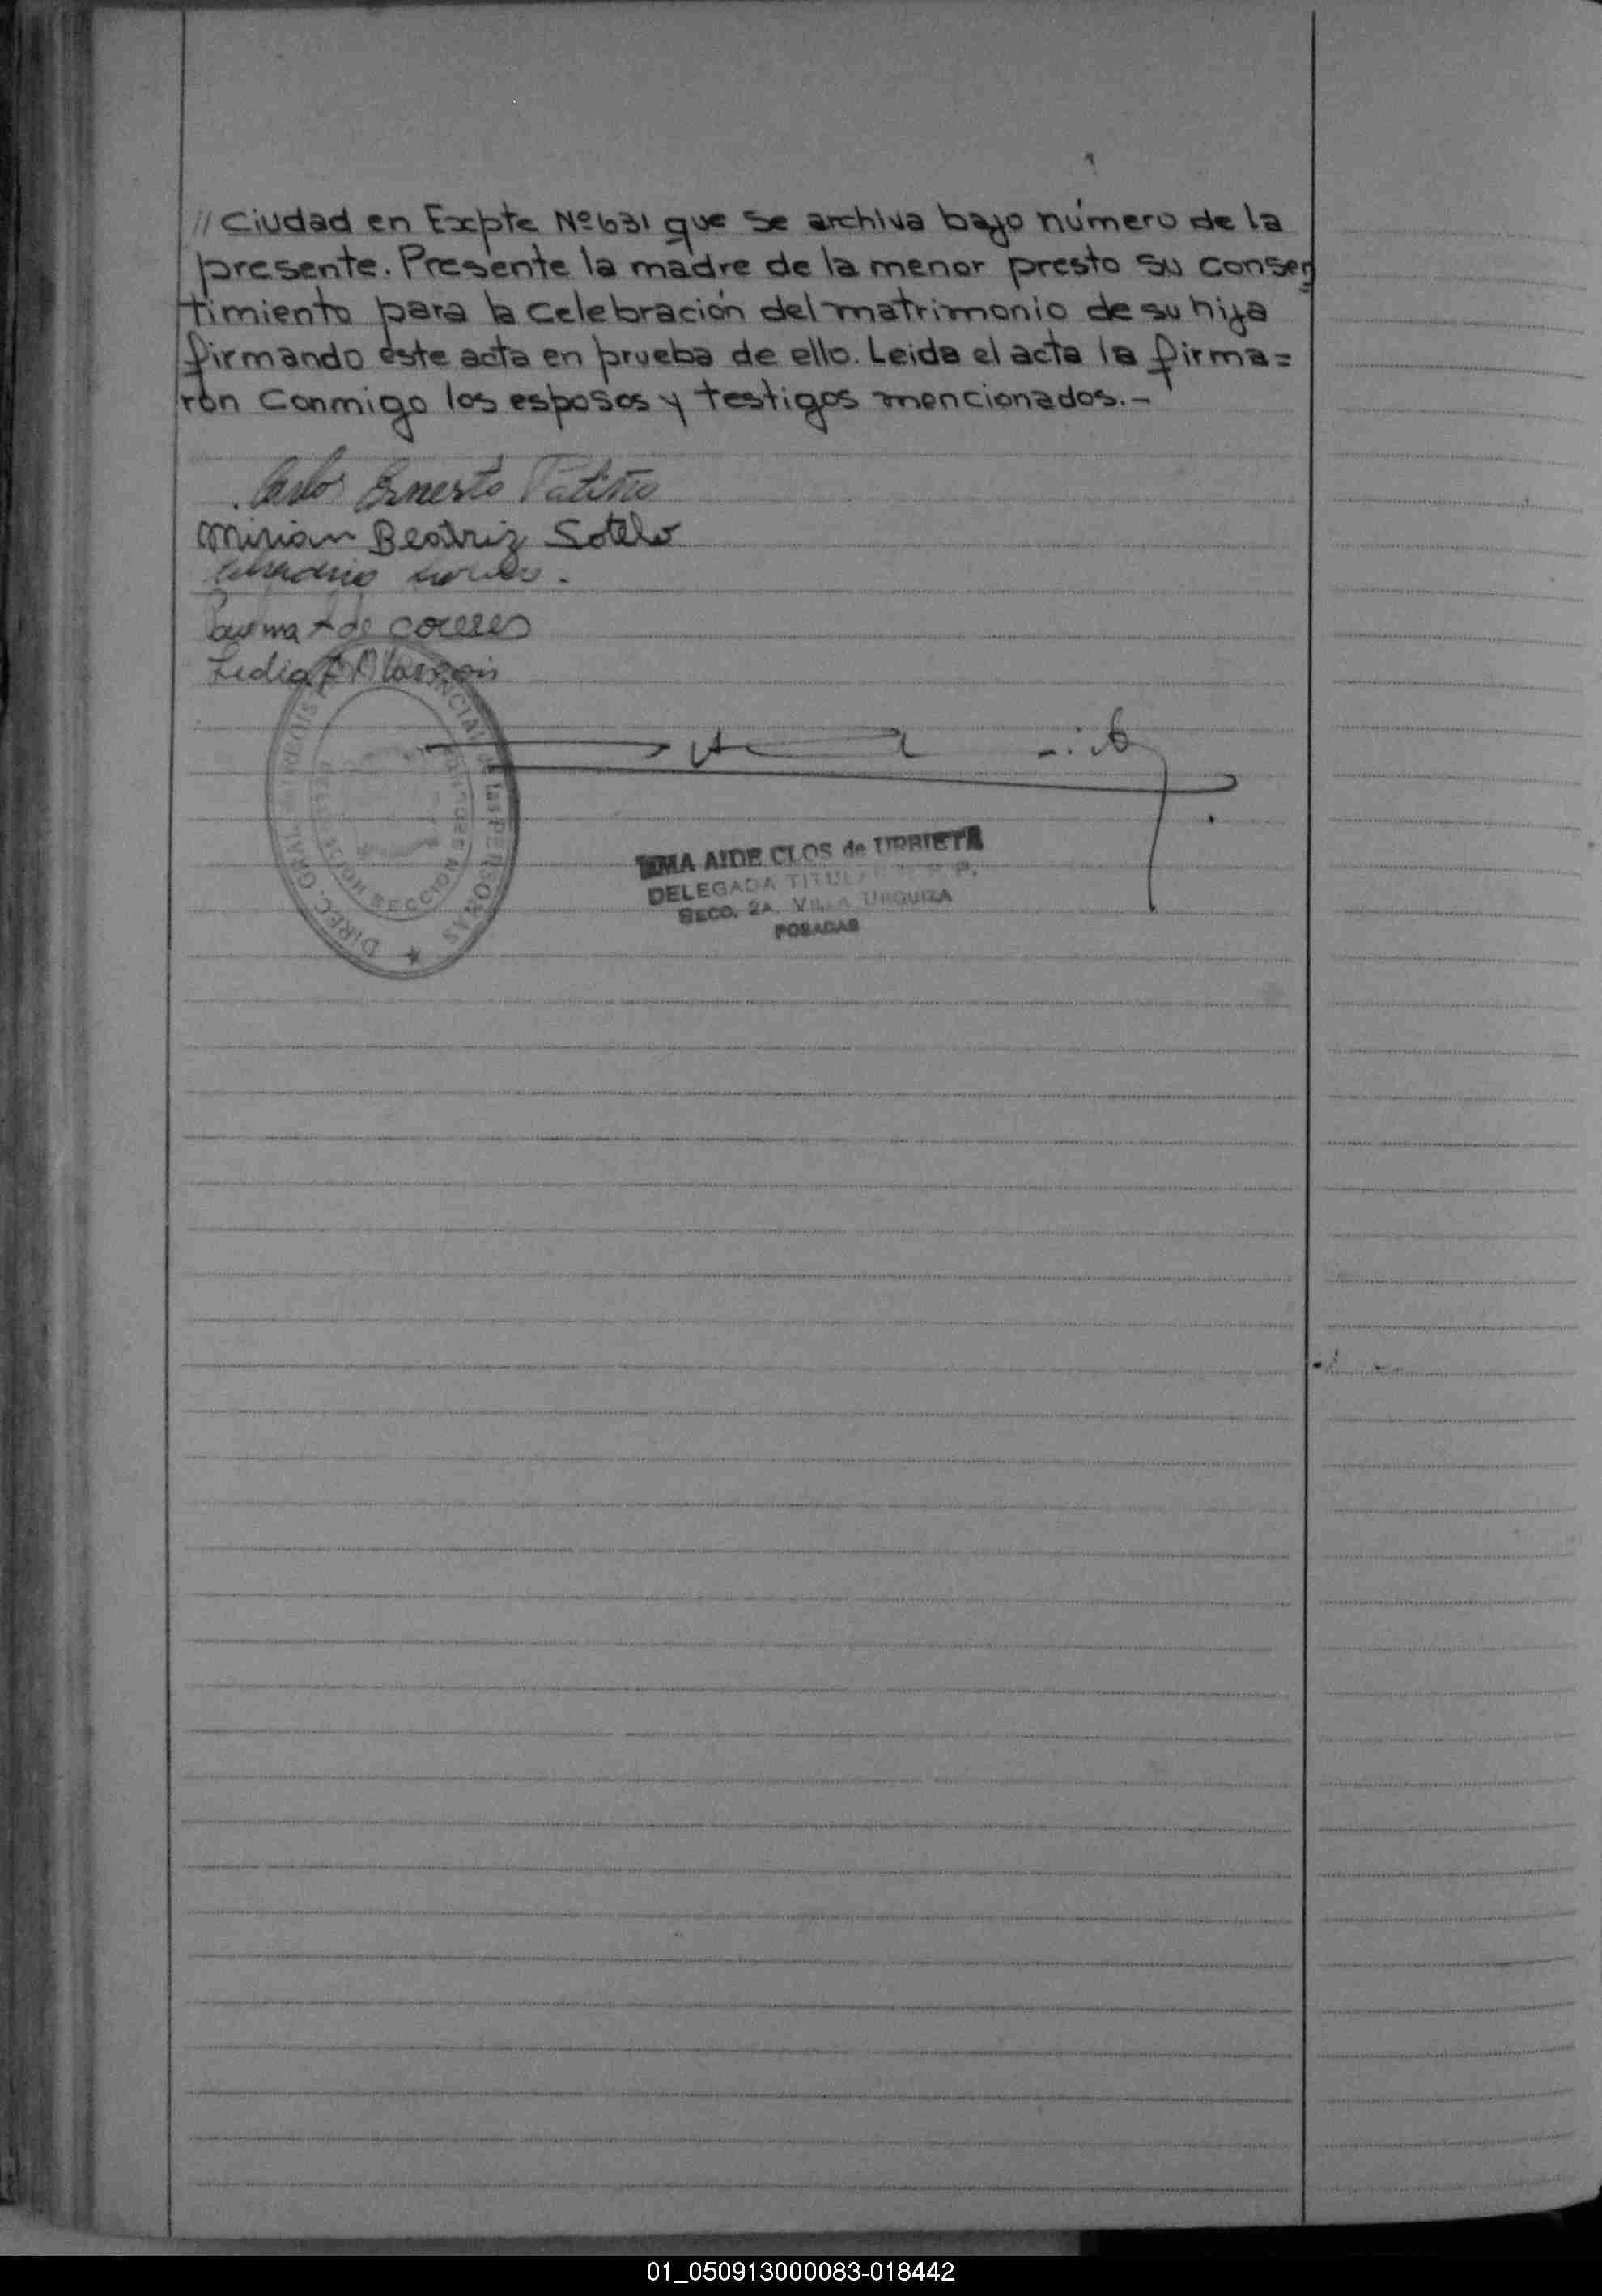 // Ciudad en Expte Nº 631 que se archiva bajo número de la
presente. Presente la madre de la menor presto su consen
timiento para la celebración del matrimonio de su hija
firmando este acta en prueba de ello. Leida el acta la firma=
ron conmigo los esposos y testigos mencionados.-
Carlos Ernesto Patiño
Mirian Beatriz Sotelo
de
Lidia
AIDE CLOS de URBIETA
DELEGADA TITULAR
SECC. 2A. VILLA URQUIZA
POSADAS
DIREC. GRAL. de las PERSONAS
SECCION
01_050913000083-018442